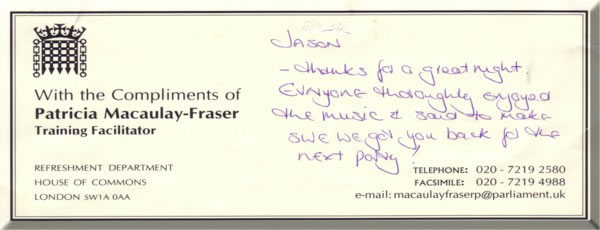 JASON
- thanks for a great night.
Everyone thoroughly enjoyed
the music & said to make
sure we got you back for the
next party!
With the Compliments of
Patricia Macaulay-Fraser
Training Facilitator
REFRESHMENT DEPARTMENT
HOUSE OF COMMONS
LONDON SW1A 0AA
TELEPHONE: 020 - 7219 2580
FACSIMILE: 020 - 7219 4988
e-mail: macaulayfraserp@parliament.uk